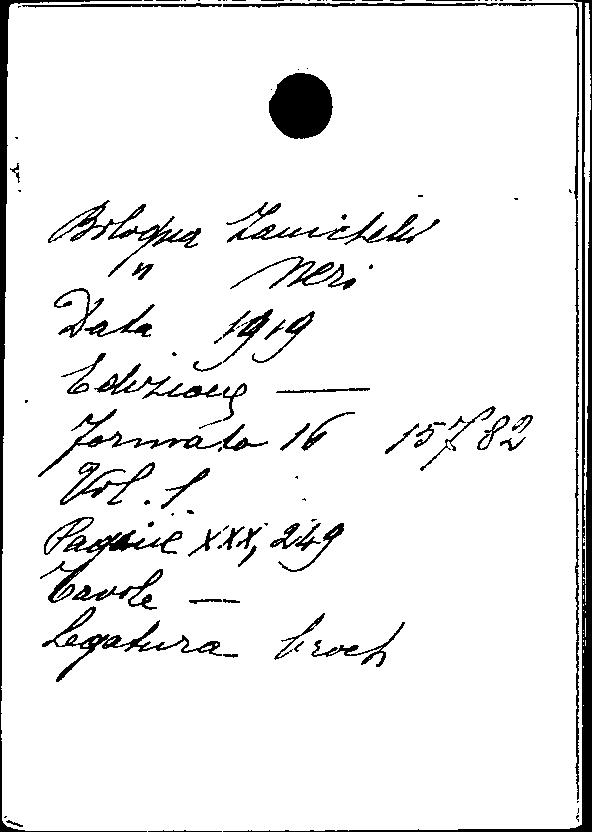 Bologna Zanichelli
" Neri
Data 1919
Edizione —
formato 16 15782
Vol. 1.
Pagine XXX, 249
Tavole —
Legatura broch